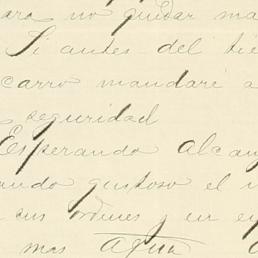 para no quedar ma
Si antes del tie
carro mandaré a
seguridad
Esperando alcan
ando gustoso el
sus ordenes y en es
mas